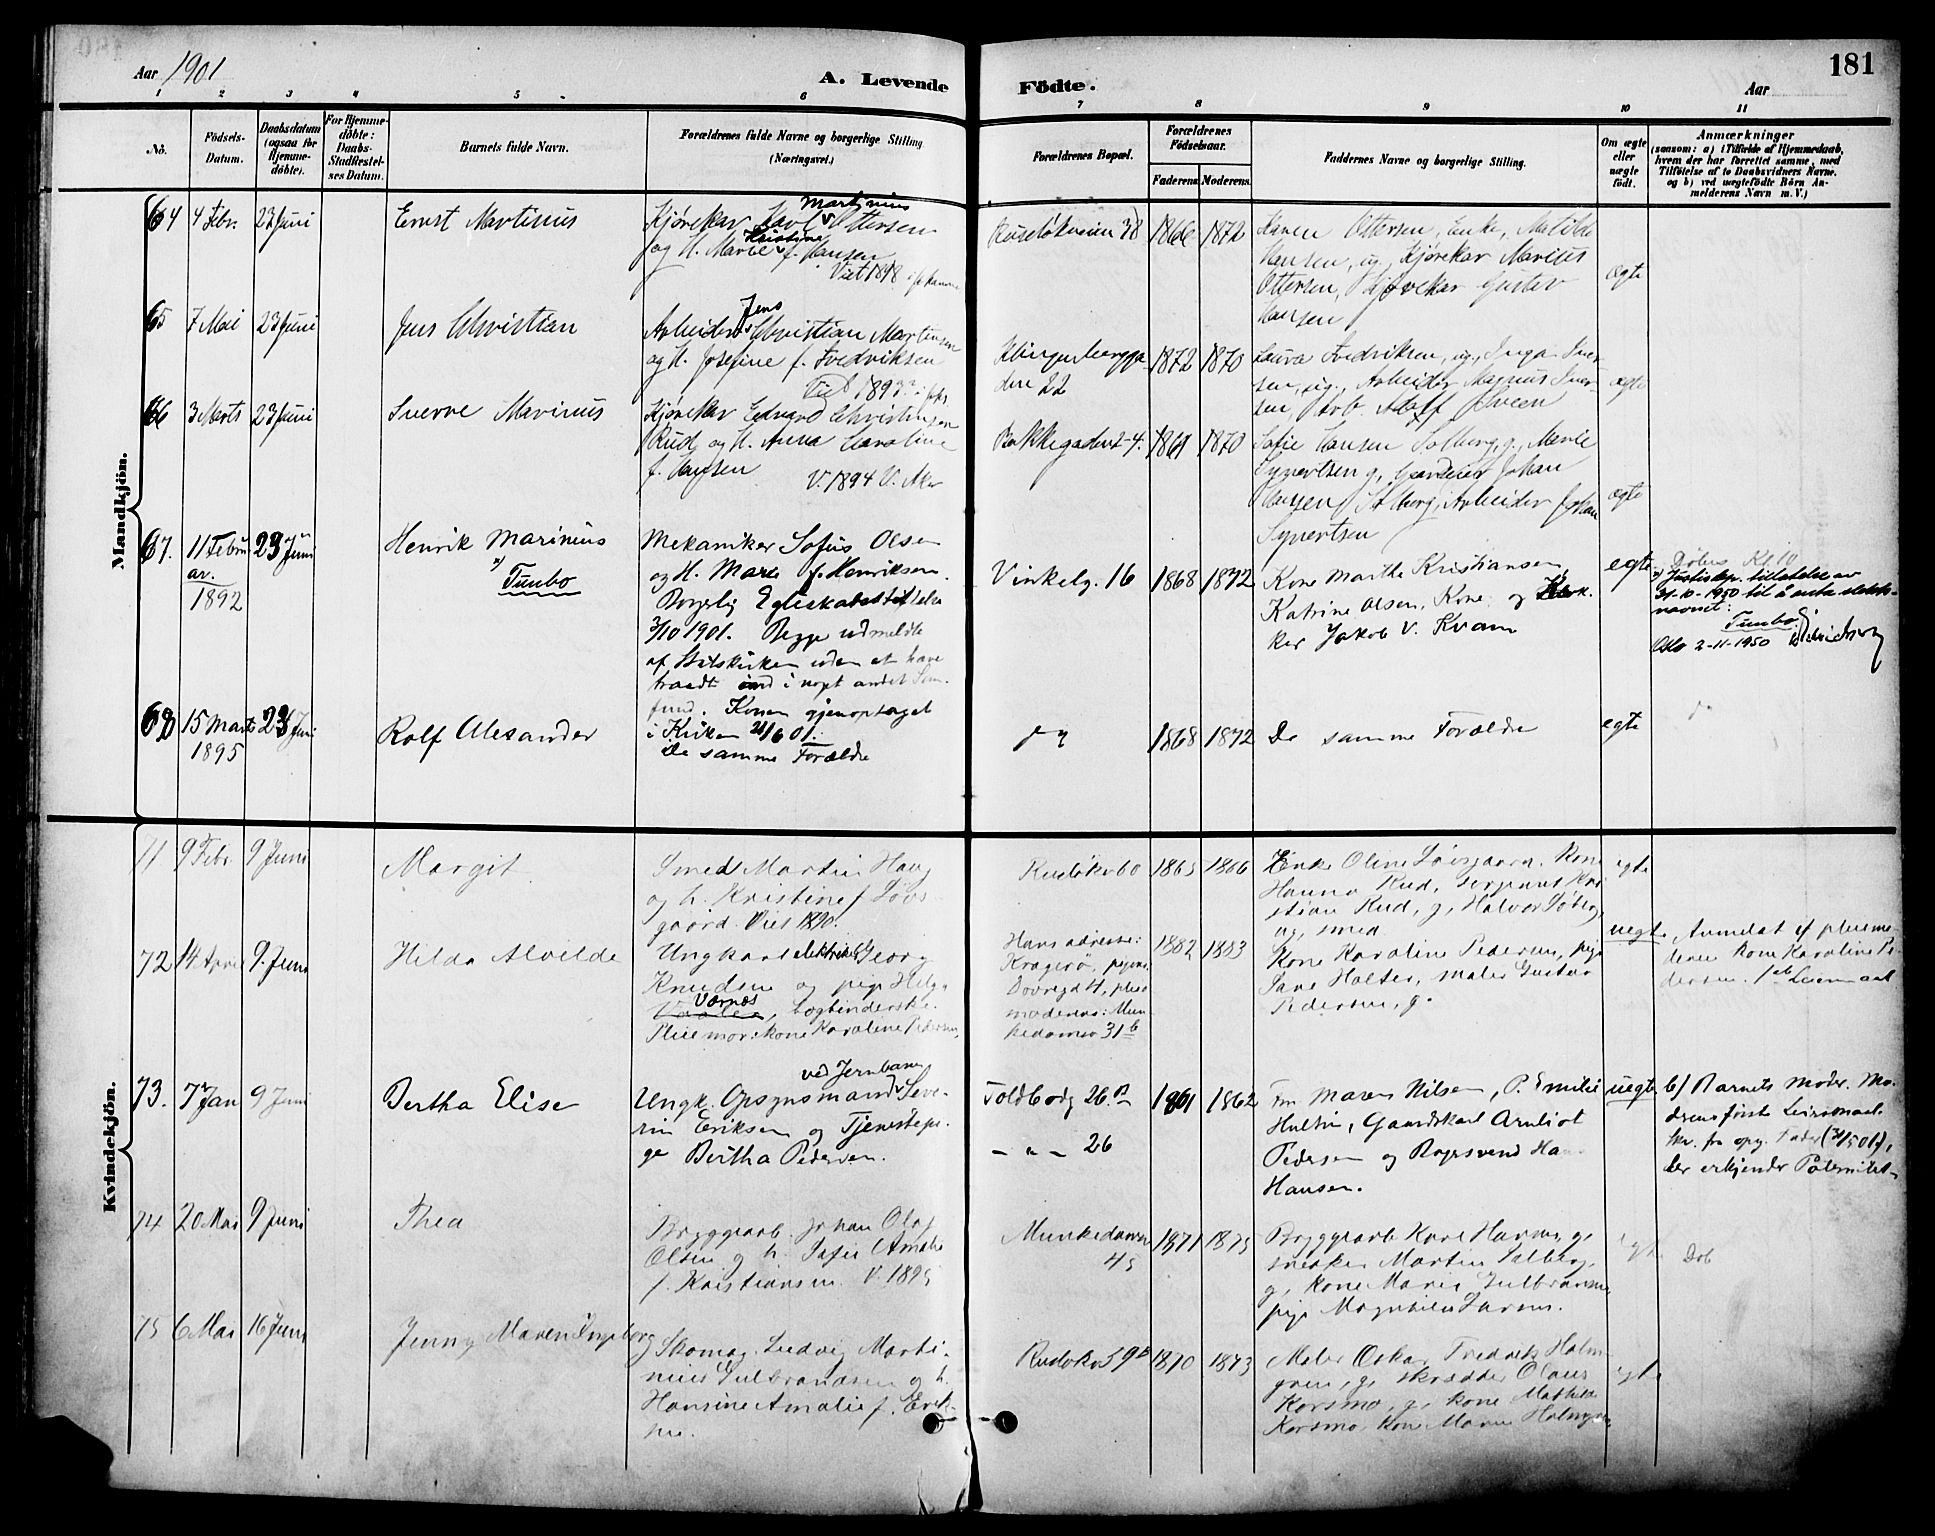 Aar 1901
A. Levende Födte.
Aar
181
1 2 3 4 5 6 7 8 9 10 11
No.
Födsels-Datum.
Daabsdatum (ogsaa for Hjemme-döbte).
For Hjemme-döbte: Daabs-Stadfæstel-ses Datum.
Barnets fulde Navn.
Forældrenes fulde Navne og borgerlige Stilling (Næringsvei.)
Forældrenes Bopæl.
Forældrenes Födselsaar.
Faderens. Moderens.
Faddernes Navne og borgerlige Stilling.
Om ægte eller uægte födt.
Anmærkninger
(saasom: a) i Tilfælde af Hjemmedaab, hvem der har forrettet samme, med Tilföielse af to Daabsvidners Navne. og b) ved uægtefödte Börn An-melderens Navn m. V.)
Mandkjön.
64 4 Febr. 23 Juni
Ernst Martinus
Martinius
Kjørekar Karl Ottersen
Kristine
og H. Marie f. Hansen
Viet 1898
Ruseløkveien 38
1866 1872
Karen Ottersen, Enke, Matilde
Hansen, ug. Kjørekar Marius
Ottersen, Kjørekar Gustav
Hansen
ægte
65 7 Mai 23 Juni
Jens Christian
Jens
Arbeider Christian Martinsen
og H. Josefine f. Fredriksen
Viet 1893
Klingenberggaden 22
1872 1870
Laura Fredriksen, ug., Inga Iver-
sen, ug., Arbeider Magnus Iver-
sen, Arb. Adolf Sveen
ægte
66 3 Marts 23 Juni
Sverre Marinus
Kjørekar Edvard Christensen
Rud og H. Anna Karoline
f. Hansen
V. 1894 V. Aker
Bakkegaden 2-4.
1861 1870
Sofie Hansen Solberg, g., Marie
Synertsen g., Johan
Hansen Solberg, Arbeider Johan
Synertsen
ægte
67. 11 Febru
ar.
1892
23 Juni
Henrik Marinius
x) Tunbo
Mekaniker Sofus Olsen
og H. Marie f. Henriksen.
Borgerlig Egteskabsstiftelse
3/10 1901. Begge udmeldte
af Statskirken uden at have
traadt ind i noget andet Sam-
fund. Konen gjenoptaget
i Kirken 21/6 01.
Vinkelg. 16
1868 1872
Kone Marthe Kristiansen,
Katrine Olsen, Kone, og
ker Jakob V. Kvam
egte
Døbers Kl. 10
x) Justisdep. tillatelse av
31-10-1950 til å anta slekts-
navnet:
Tunbo
Oslo 2-11-1950
68 15 Marts
1895
23 Juni
Rolf Alexander
De samme Forældre
1868 1872
De samme Forældre
egte
Kvindekjön.
71 9 Febr. 9 Juni
Margit
Smed Martin Haug
og h. Kristine f. Løvs-
gaard. Viet 1890.
Rusløkv 60
1865 1866
Enke Oline Løvsgaard, Kone
Hanna Rud, Sergeant Kri-
stian Rud, g., Halvor Soberg,
ug, smed
egte
72 14 April 9. Juni
Hilda Alvilde
Ungkarl elektriker Georg
Knudsen og pige Helga
Værnes
, bogbinderske.
Pleiemor: kone Karoline Pedersen,
Hans adresse:
Kragerø, pigens
Dovregd 4, pleie
moderens: Mun-
kedamsv 31 b
1882 1883
Kone Karoline Pedersen, pige
Jane Halter, maler Gustav
Pedersen, g.
uegt.
Anmeldt af pleiemo-
deren kone Karoline Pe-
dersen. 1ste Leiermaal
73. 7 Jan 9 Juni
Bertha Elise
ved Jernbanen
Ungk. Opsynsmand Seve-
rin Eriksen og Tjenestepi-
ge Bertha Pedersen.
Toldbodg 26 B
- " - 26
1861 1862
Fru Maren Nilsen, P. Emilie
Hultin, Gaardskarl Arnliot
Pedersen og Bogsvend Ha
Hansen.
uegte
b) Barnets Moder. Mo-
derens første Leiermaal.
Skr. fra opg. Fader (31/5 01),
der erkjender Paternitet.
74 20 Mai 9 Juni
Thea
Bryggearb. Johan Olaf
Olsen og h. Sofie Amalie
f. Kristiansen. V. 1895
Munkedamsv
45
1871 1875
Bryggearb Karl Hansen, g,
snedker Martin Solberg,
g, kone Marie Gulbransen
pige Magnhild Larsen.
egte
Døb
75 6 Mai 16 Juni
Jenny Maren Ingeborg
Skomag. Ludvig Marti-
nius Gulbrandsen og h.
Hansine Amalie f. Erik-
sen.
Rusløkv 59 B
1870 1873
Maler Oskar Fredrik Holm-
gren, g, skrædder Olaus
Korsmo, g, kone Mathilde
Korsmo, kone Maren Holmgren
egte